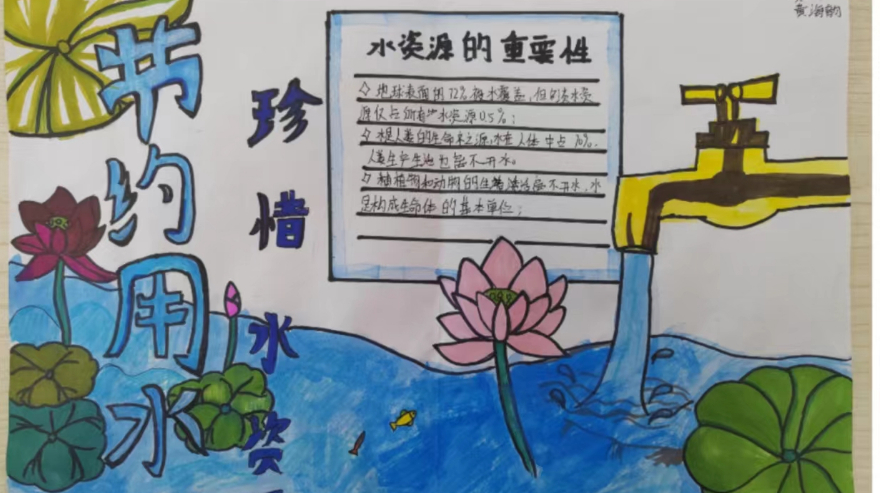 黄海韵
节约用水
珍惜水资
水资源的重要性
◇地球表面的72%被水覆盖,但的淡水资
源仅占所有水资源0.5%;
◇水是人类的生命来之源,水在人体中占70%.
人类生产生活也离不开水。
◇植植物和动物的生着 不开水,水
是构成生命体的基本单位;